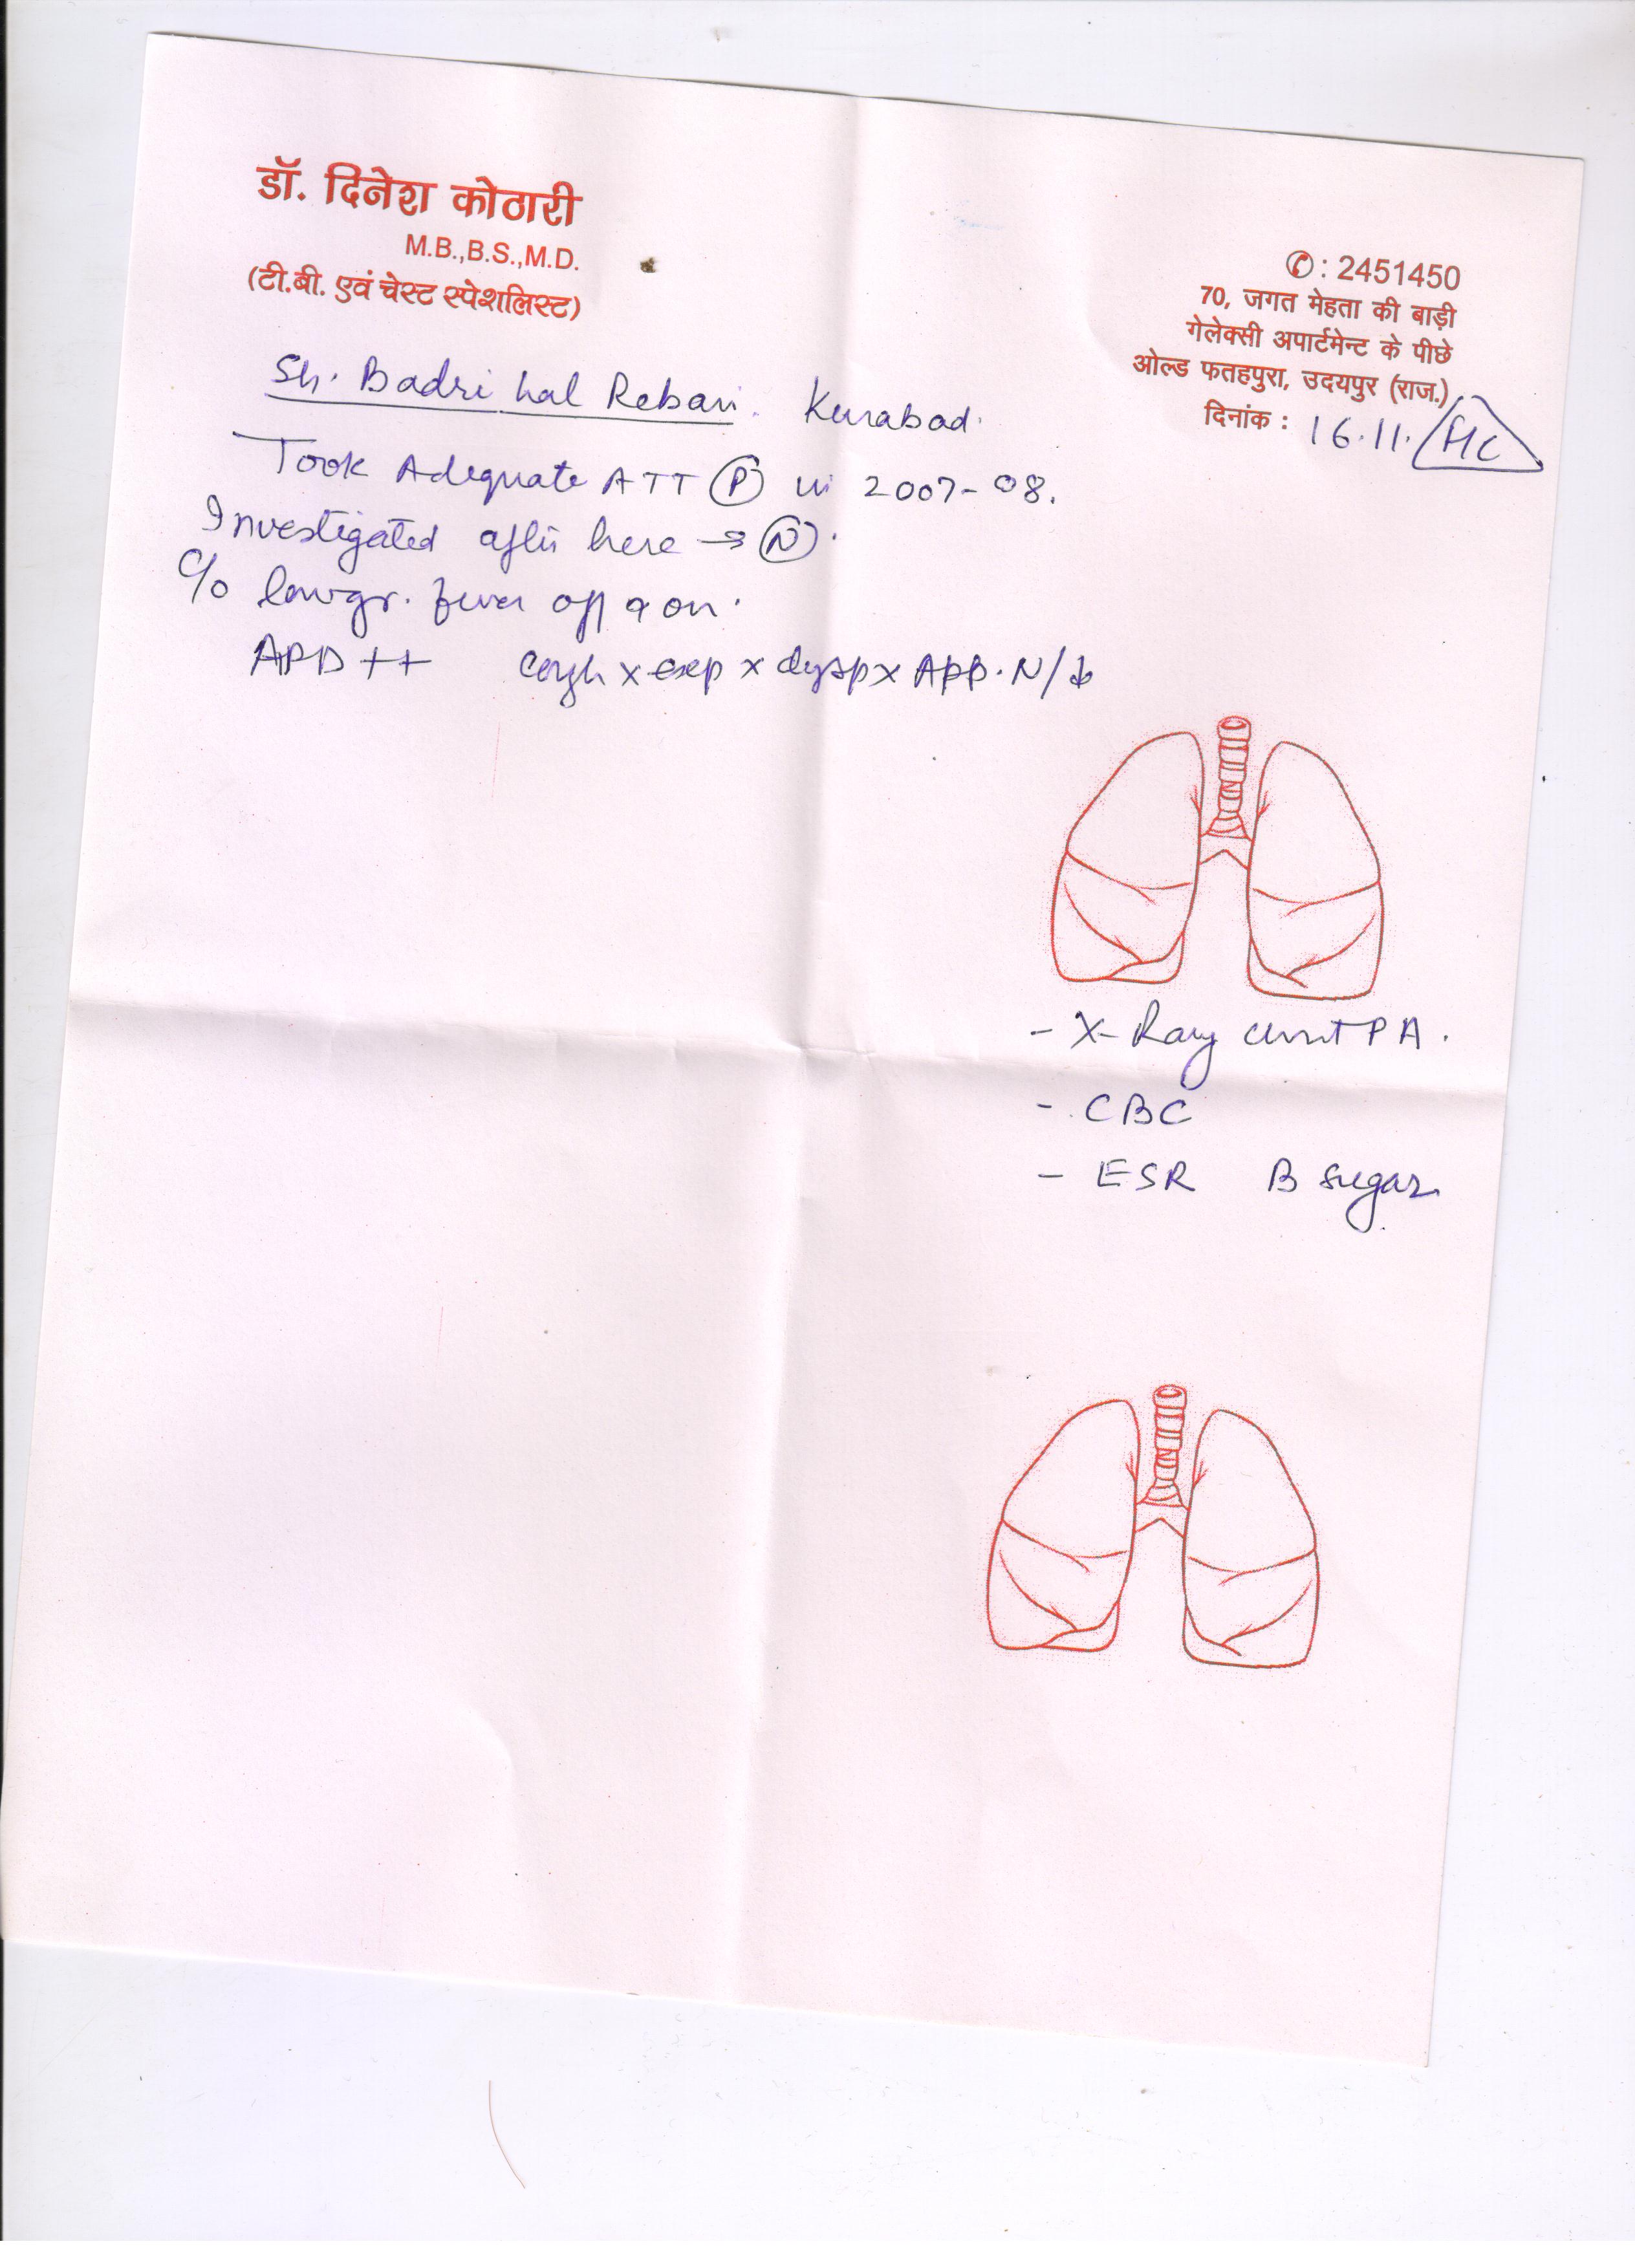 डॉ. दिनेश कोठारी
M.B.,B.S.,M.D.
(टी.बी. एवं चेस्ट स्पेशलिस्ट)
✆: 2451450
70, जगत मेहता की बाड़ी
गेलेक्सी अपार्टमेन्ट के पीछे
ओल्ड फतहपुरा, उदयपुर (राज.)
दिनांक : 16.11.
Sh. Badri Lal Rebari. Kurabad.
Took Adequate ATT (P) in 2007-08.
Investigated after here → (N).
C/o lowgr. fever off & on.
APD ++ cough x exp x dysp x App. N/↓
- X-Ray chest PA.
- CBC
- ESR B sugar